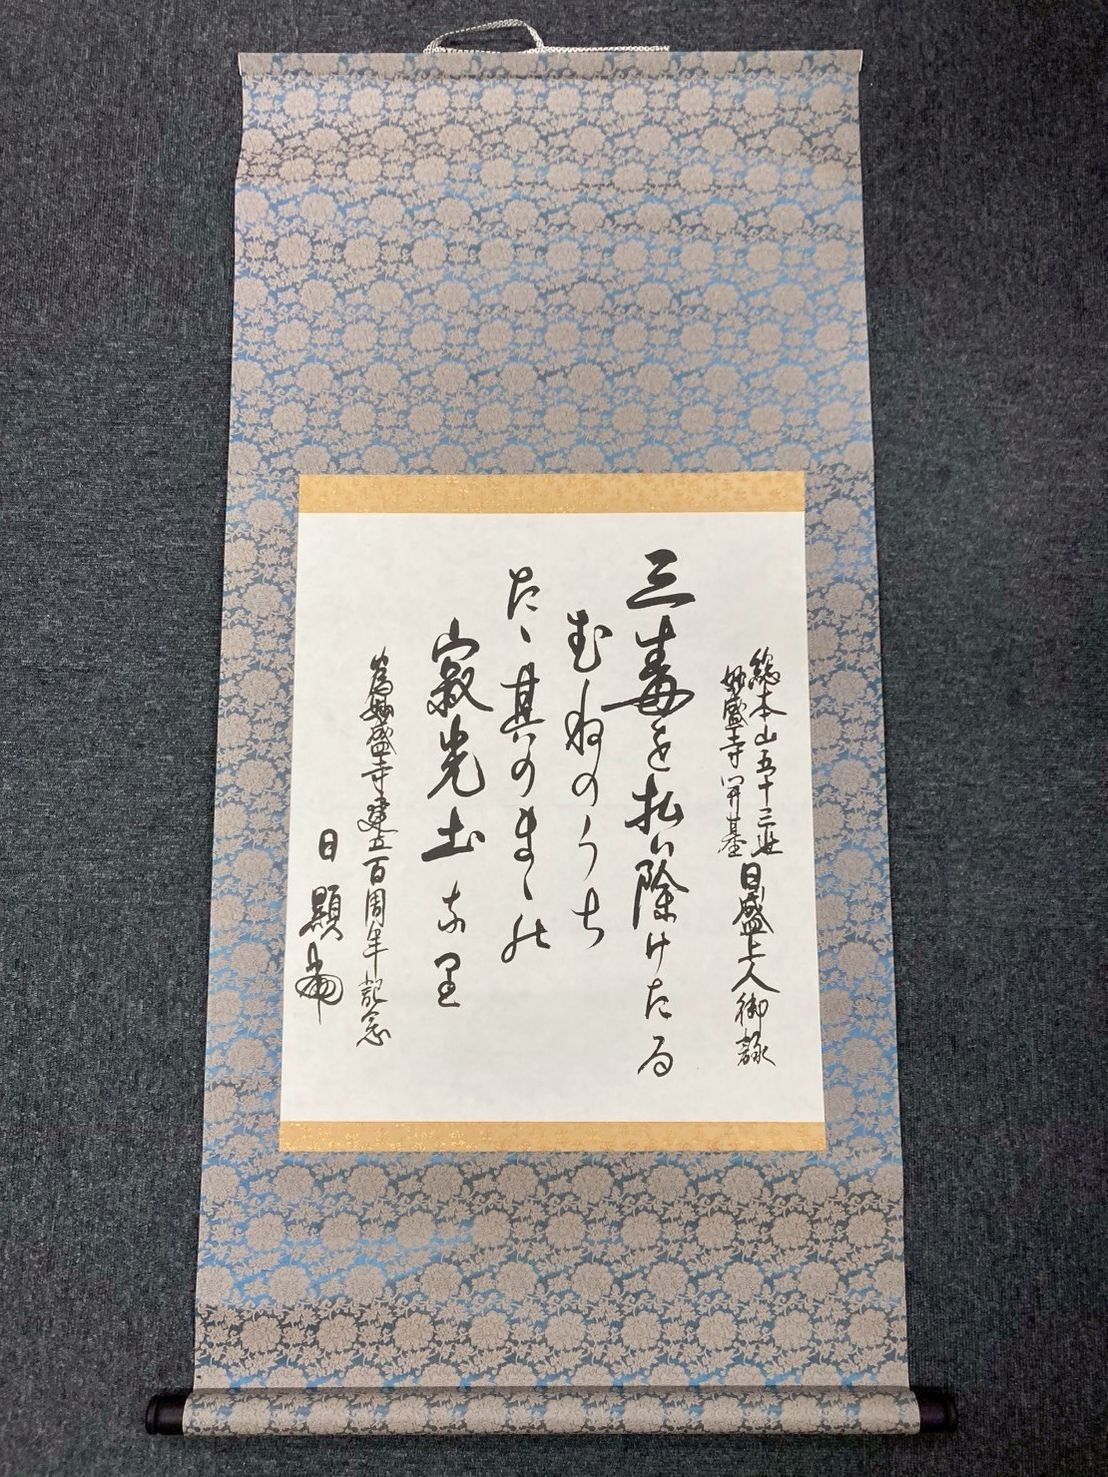 総本山五十三世
妙盛寺開基
日盛上人御詠
三毒を払い除けたる
むねのうち
たゝ其のまゝの
寂光土なり
為妙盛寺建立百周年記念
日顯